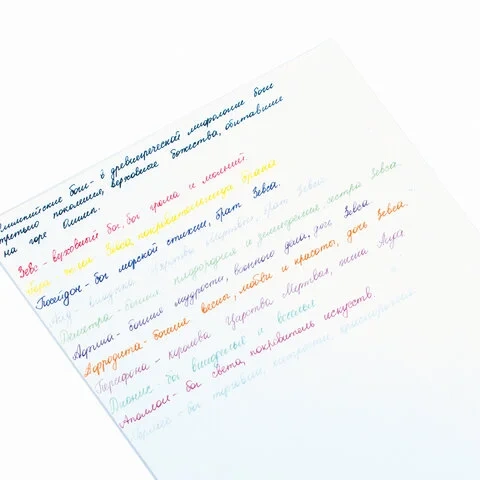 Олимпийские боги - в древнегреческой мифологии боги
третьего поколения, верховные божества, обитавшие
на горе Олимп.
Зевс - верховный бог, бог грома и молний.
Гера - Зевса, покровительница брака.
Посейдон - бог морской стихии, брат Зевса.
Аид - царства мёртвых, брат Зевса
Деметра - богиня плодородия и земледелия, сестра Зевса.
Афина - богиня мудрости, военного дела, дочь Зевса
Афродита - богиня весны, любви и красоты, дочь Зевса.
Персефона - королева Царства Мёртвых, жена Аида
Дионис - бог виноделия и веселья
Аполлон - бог света, покровитель искусств.
Гермес - бог торговли, хитрости,